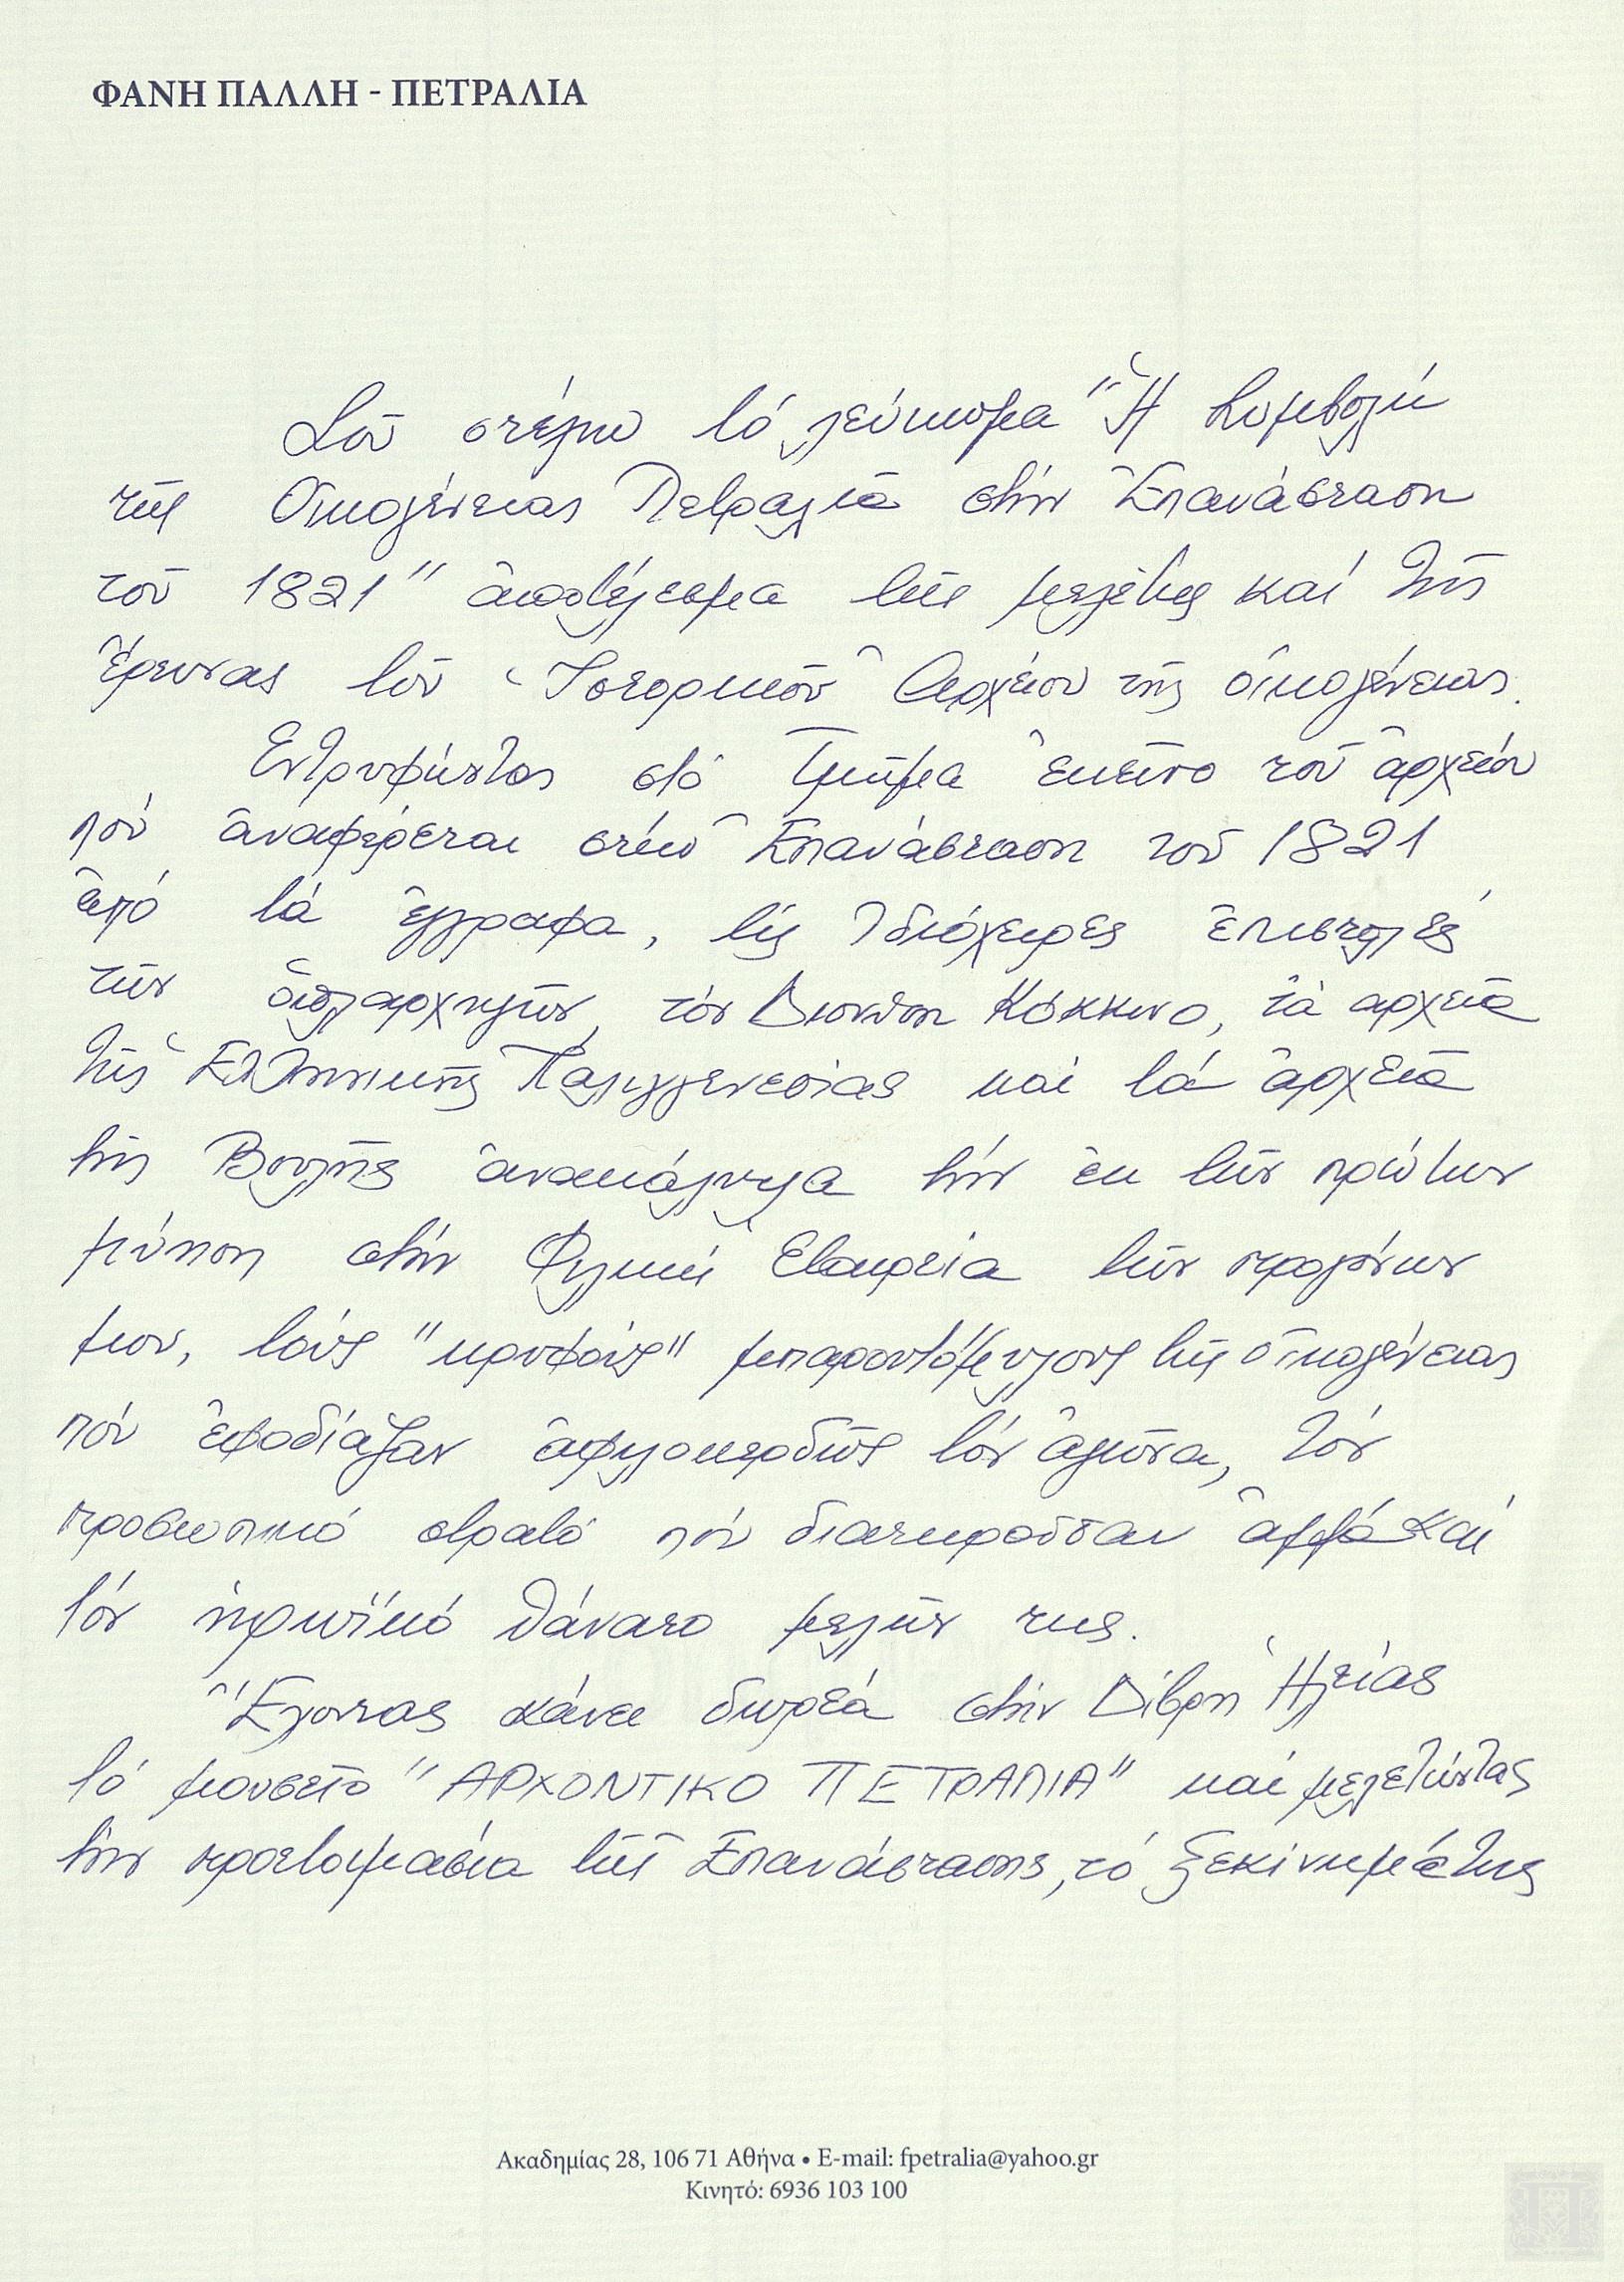 ΦΑΝΗ ΠΑΛΛΗ - ΠΕΤΡΑΛΙΑ
Σοῦ στέλνω τό λεύκωμα "Ἡ Συμβολή
τῆς Οἰκογένειας Πετραλιᾶ στήν Ἐπανάσταση
τοῦ 1821" ἀποτέλεσμα τῆς μελέτης καί τῆς
ἔρευνας τοῦ Ἱστορικοῦ Ἀρχείου τῆς οἰκογένειας.
Ἐντρυφώντας στό τμῆμα ἐκεῖνο τοῦ ἀρχείου
πού ἀναφέρεται στήν Ἐπανάσταση τοῦ 1821
ἀπό τά ἔγγραφα, τίς ἰδιόχειρες ἐπιστολές
τῶν ὁπλαρχηγῶν, τόν Διονύση Κόκκινο, τά ἀρχεῖα
τῆς Ἑλληνικῆς Παλιγγενεσίας καί τά ἀρχεῖα
τῆς Βουλῆς ἀνακάλυψα τήν ἐκ τῶν πρώτων
μύηση στήν Φιλική Ἑταιρεία τῶν προγόνων
μου, τούς "κρυφούς" μπαρουτόμυλους τῆς οἰκογένειας
πού ἐφοδίαζαν ἀφιλοκερδῶς τόν ἀγῶνα, τόν
προσωπικό στρατό πού διατηροῦσαν ἀλλά καί
τόν ἡρωϊκό θάνατο μελῶν της.
Ἔχοντας κάνει δωρεά στήν Δίβρη Ἠλείας
τό μουσεῖο "ΑΡΧΟΝΤΙΚΟ ΠΕΤΡΑΛΙΑ" καί μελετώντας
τήν προετοιμασία τῆς Ἐπανάστασης, τό ξεκίνημά της
Ακαδημίας 28, 106 71 Αθήνα • E-mail: fpetralia@yahoo.gr
Κινητό: 6936 103 100